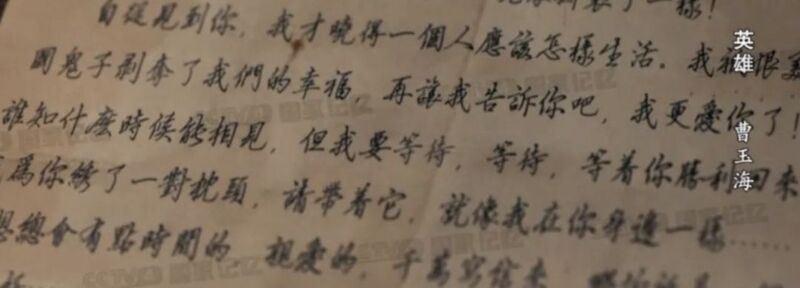 一樣！
自從見到你，我才曉得一個人應該怎樣生活。我
國鬼子剥奪了我們的幸福，再讓我告訴你吧，我更愛你了！
誰知什麽時候能相見，但我要等待，等待，等着你勝利回來
爲你綉了一對枕頭，請帶着它，就像我在你身邊一樣……
總會有點時間的 親愛的，千萬寫信來
英雄 曹玉海